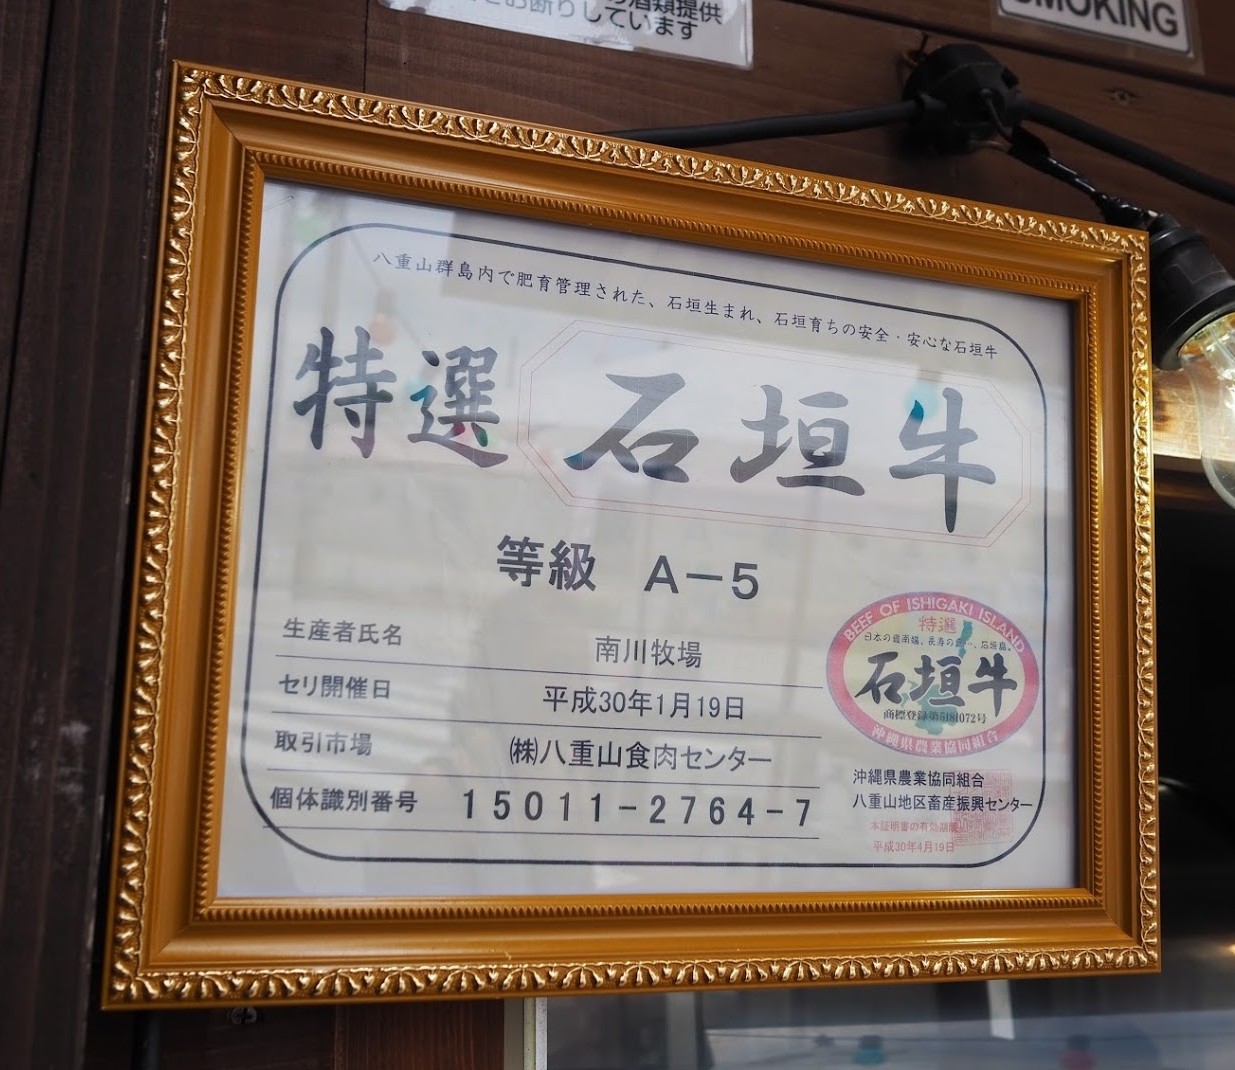 酒類提供
お断りしています
SMOKING
八重山群島内で肥育管理された、石垣生まれ、石垣育ちの安全・安心な石垣牛
特選 石垣牛
等級 A-5
生産者氏名 南川牧場
セリ開催日 平成30年1月19日
取引市場 ㈱八重山食肉センター
個体識別番号 15011-2764-7
BEEF OF ISHIGAKI ISLAND
特選
日本の最南端、長寿の 石垣島。
石垣牛
商標登録第5181072号
沖縄県農業協同組合
沖縄県農業協同組合
八重山地区畜産振興センター
本証明書の有効期限
平成30年4月19日